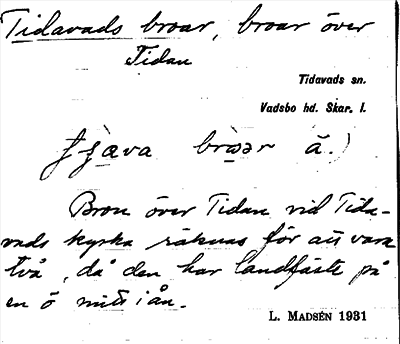 Tidavads broar, broar över
Tidan
Tidavads sn.
Vadsbo hd. Skar. l.
broər å.)
Bron över Tidan vid Tida-
vads kyrka räknas för att vara
två, då den har landfäste på
en ö mitt i ån.
L. MADSÉN 1931